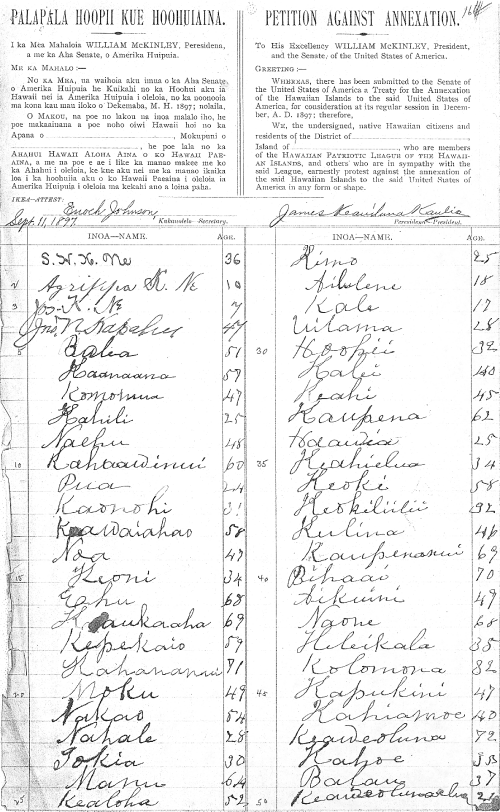 PALAPALA HOOPII KUE HOOHUIAINA.
I ka Mea Mahaloia WILLIAM McKINLEY, Peresidena,
a me ka Aha Senate, o Amerika Huipuia.
ME KA MAHALO:—
No KA MEA, ua waihoia aku imua o ka Aha Senate
o Amerika Huipuia he Kuikahi no ka Hoohui aku ia
Hawaii nei ia Amerika Huipuia i oleloia, no ka noonooia
ma kona kau mau iloko o Dekemaba, M. H. 1897; nolaila,
O MAKOU, na poe no lakou na inoa malalo iho, he
poe makaainana a poe noho oiwi Hawaii hoi no ka
Apana o , Mokupuni o
, he poe lala no ka
AHAHUI HAWAII ALOHA AINA O KO HAWAII PAE-
AINA, a me na poe e ae i like ka manao makee me ko
ka Ahahui i oleloia, ke kue aku nei me ka manao ikaika
loa i ka hoohuiia aku o ko Hawaii Paeaina i oleloia ia
Amerika Huipuia i oleloia ma kekahi ano a loina paha.
IKEA—ATTEST:
Sept. 11, 1897. Enoch Johnson
Kakauolelo—Secretary.
PETITION AGAINST ANNEXATION.
To His Excellency WILLIAM McKINLEY, President,
and the Senate, of the United States of America.
GREETING:—
WHEREAS, there has been submitted to the Senate of
the United States of America a Treaty for the Annexation
of the Hawaiian Islands to the said United States of
America, for consideration at its regular session in Decem-
ber, A. D. 1897; therefore,
WE, the undersigned, native Hawaiian citizens and
residents of the District of ,
Island of , who are members
of the HAWAIIAN PATRIOTIC LEAGUE OF THE HAWAII-
AN ISLANDS, and others who are in sympathy with the
said League, earnestly protest against the annexation of
the said Hawaiian Islands to the said United States of
America in any form or shape.
James Keauiluna Kaulia
Peresidena—President.
INOA—NAME. AGE.
S. W. K. Ne 36
Agrippa K. Ne 10
3 Jos. K. Ne 7
Jno. N. Kapahu 47
5 Balea 51
Kaanaana 57
Komomua 47
Kahili 25
Naehu 48
10 Kahaawinui 60
Pua 24
Kaonohi
Keawaiahao 58
Noa 47
15 Keoni 34
Ephu 68
Kaukaaha 69
Kepekaio 59
Kahananui 71
Moku 49
Nakao 54
Nahale 28
Iokia 30
Manu 64
25 Kealoha 52
INOA—NAME. AGE.
Kimo 25
Ailulene 18
Kale 17
Uilama 28
30 Hoopii 32
Kalei 40
Keahi 45
Kaupena 62
Haawia 25
35 Keahielua 34
Keoki 58
Keokiliilii 32
Kulina 46
Kaupenanui 69
40 Bihaai 70
Aikuini 49
Naone 68
Heleikala 35
Kolomona 82
45 Kapukini 47
Kahiamoe 40
Keaweoluna 72
Kahoe 33
Balau 37
50 Keaweolunaelua 21